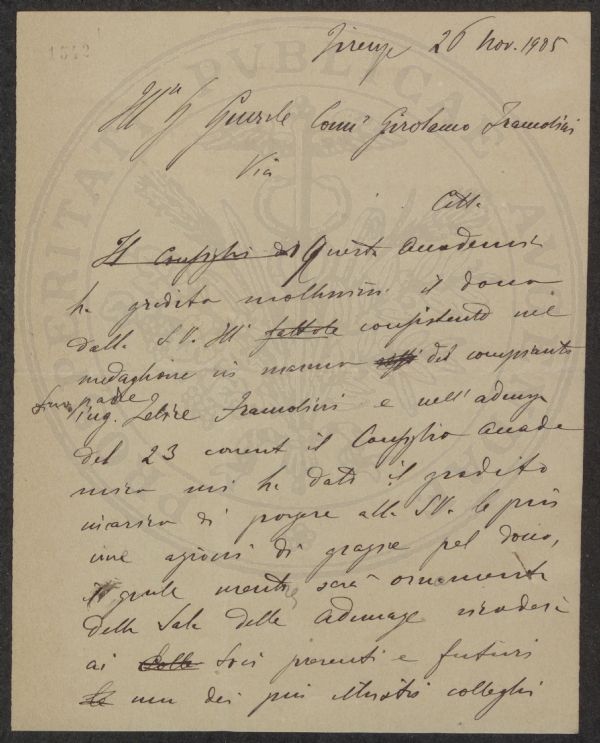 1573
Firenze 26 Nov. 1905
Ill.mo Sr Comm.e Girolamo Tramontini
Via
Città
Il Consiglio del Questa Accademia
ha gradito moltissimo il dono
dalla S.V. Ill fattole consistente nel
medaglione in marmo del compianto
Suo padre
ing. Felice e nell'adunza
del 23 corrent il Consiglio Accade
mico mi ha dato il gradito
incarico di porgere alla S.V. le più
vive azioni di grazie pel dono,
il quale mentre sarà ornamento
della Sala delle Adunanze ricorderà
ai Colle Soci presenti e futuri
uno dei più illustri colleghi
PRO PERITATI PVBLICAE AVG